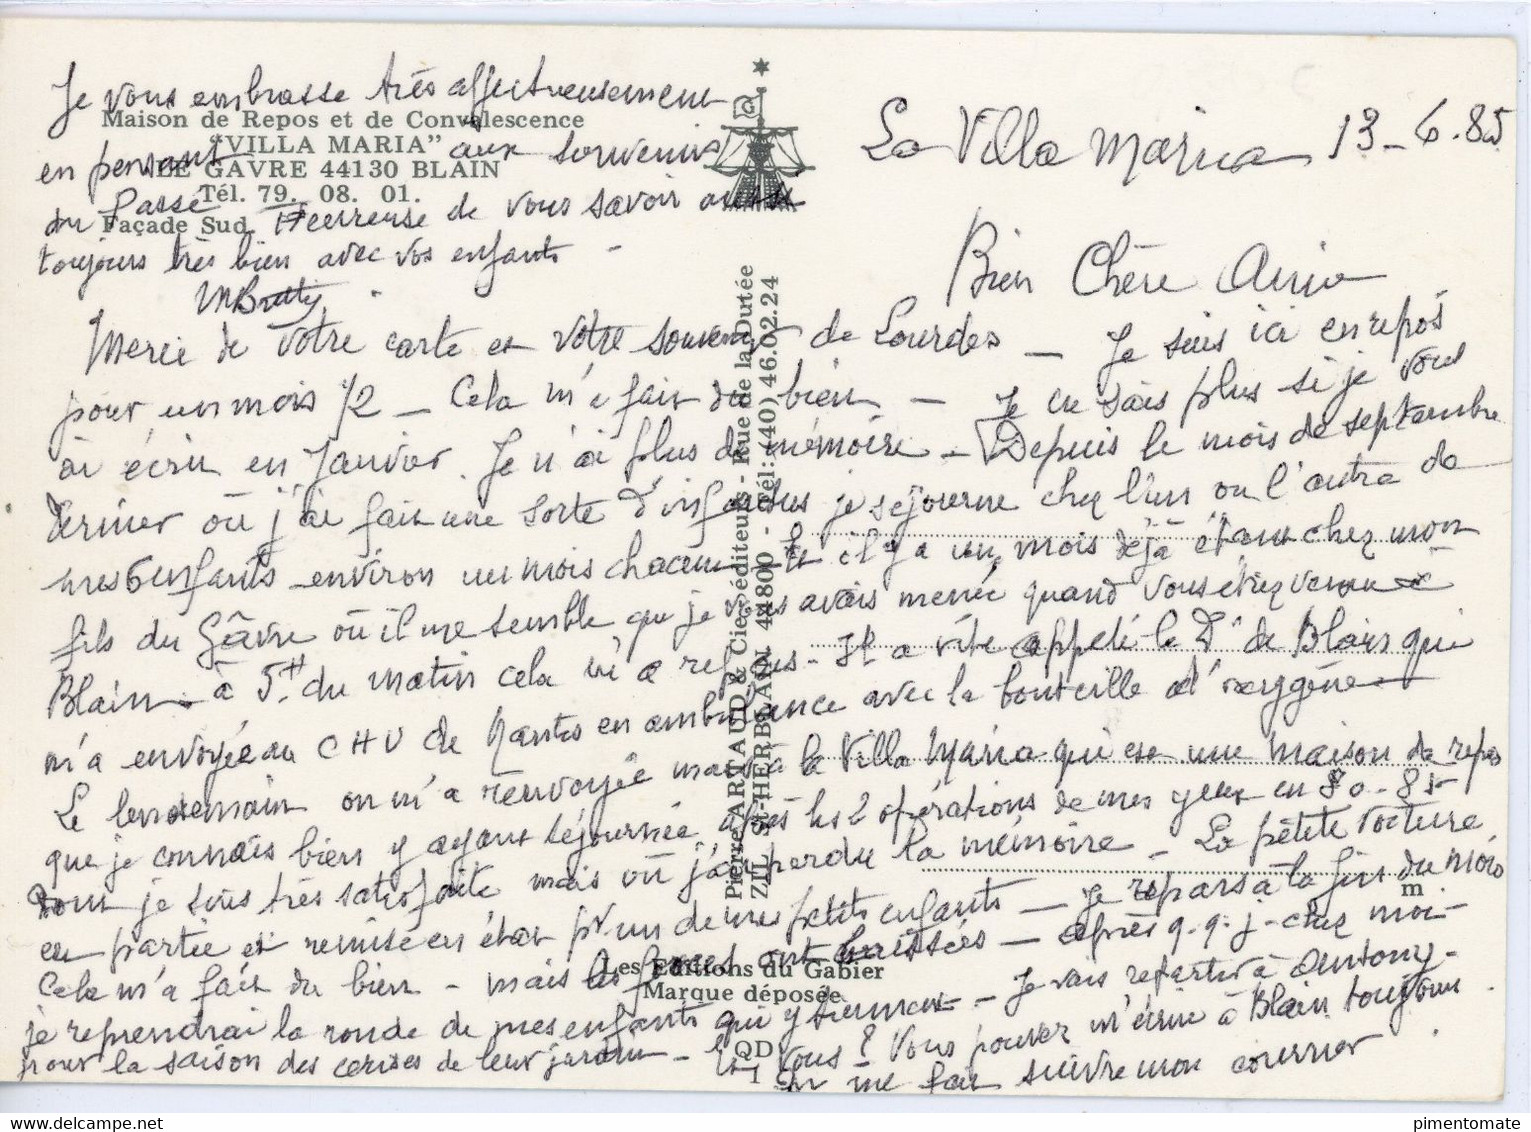 La Villa Maria 13-6.85
Bien Chère Amie
Merci de votre carte et votre souvenir de Lourdes – Je suis ici en repos
pour un mois 1/2 – Cela m'a fait du bien – Je ne sais plus si je vous
ai écrit en Janvier. Je n'ai plus de mémoire – Depuis le mois de septembre
dernier où j'ai fait une sorte d'infarctus je séjourne chez l'un ou l'autre de
mes 6 enfants environ un mois chacun – Et il y a un mois déjà étant chez mon
fils du Gâvre où il me semble que je vous avais menée quand vous étiez venue à
Blain – à 5H du matin cela m'a repris – Il a vite appelé le Dr de Blain qui
m'a envoyée au CHU de Nantes en ambulance avec la bouteille d'oxygène
Le lendemain on m'a renvoyée mais à la Villa Maria qui est une maison de repos
que je connais bien y ayant séjournée après les 2 opérations de mes yeux en 80-85
dont je suis très satisfaite mais où j'ai perdu la mémoire – La petite voiture
en partie et remise en état pr un de mes petits enfants – Je repars à la fin du mois
Cela m'a fait du bien – mais les forces ont baissées – après q.q.j. chez moi –
je reprendrai la ronde de mes enfants qui y tiennent – Je vais repartir à Antony –
pour la saison des cerises de leur jardin – Et vous? Vous pouvez m'écrire à Blain toujours.
on me fait suivre mon courrier.
Je vous embrasse très affectueusement
en pensant aux souvenirs
du Passé Heureuse de vous savoir aussi
toujours très bien avec vos enfants –
Maison de Repos et de Convalescence
"VILLA MARIA"
LE GAVRE 44130 BLAIN
Tél. 79. 08. 01.
Façade Sud
Pierre ARTAUD & Cie, éditeurs - Rue de la Dutée
ZIL ST-HERBLAIN 44800 - Tél: (40) 46.02.24
Les Editions du Gabier
Marque déposée
QD
1
m
pimentomate